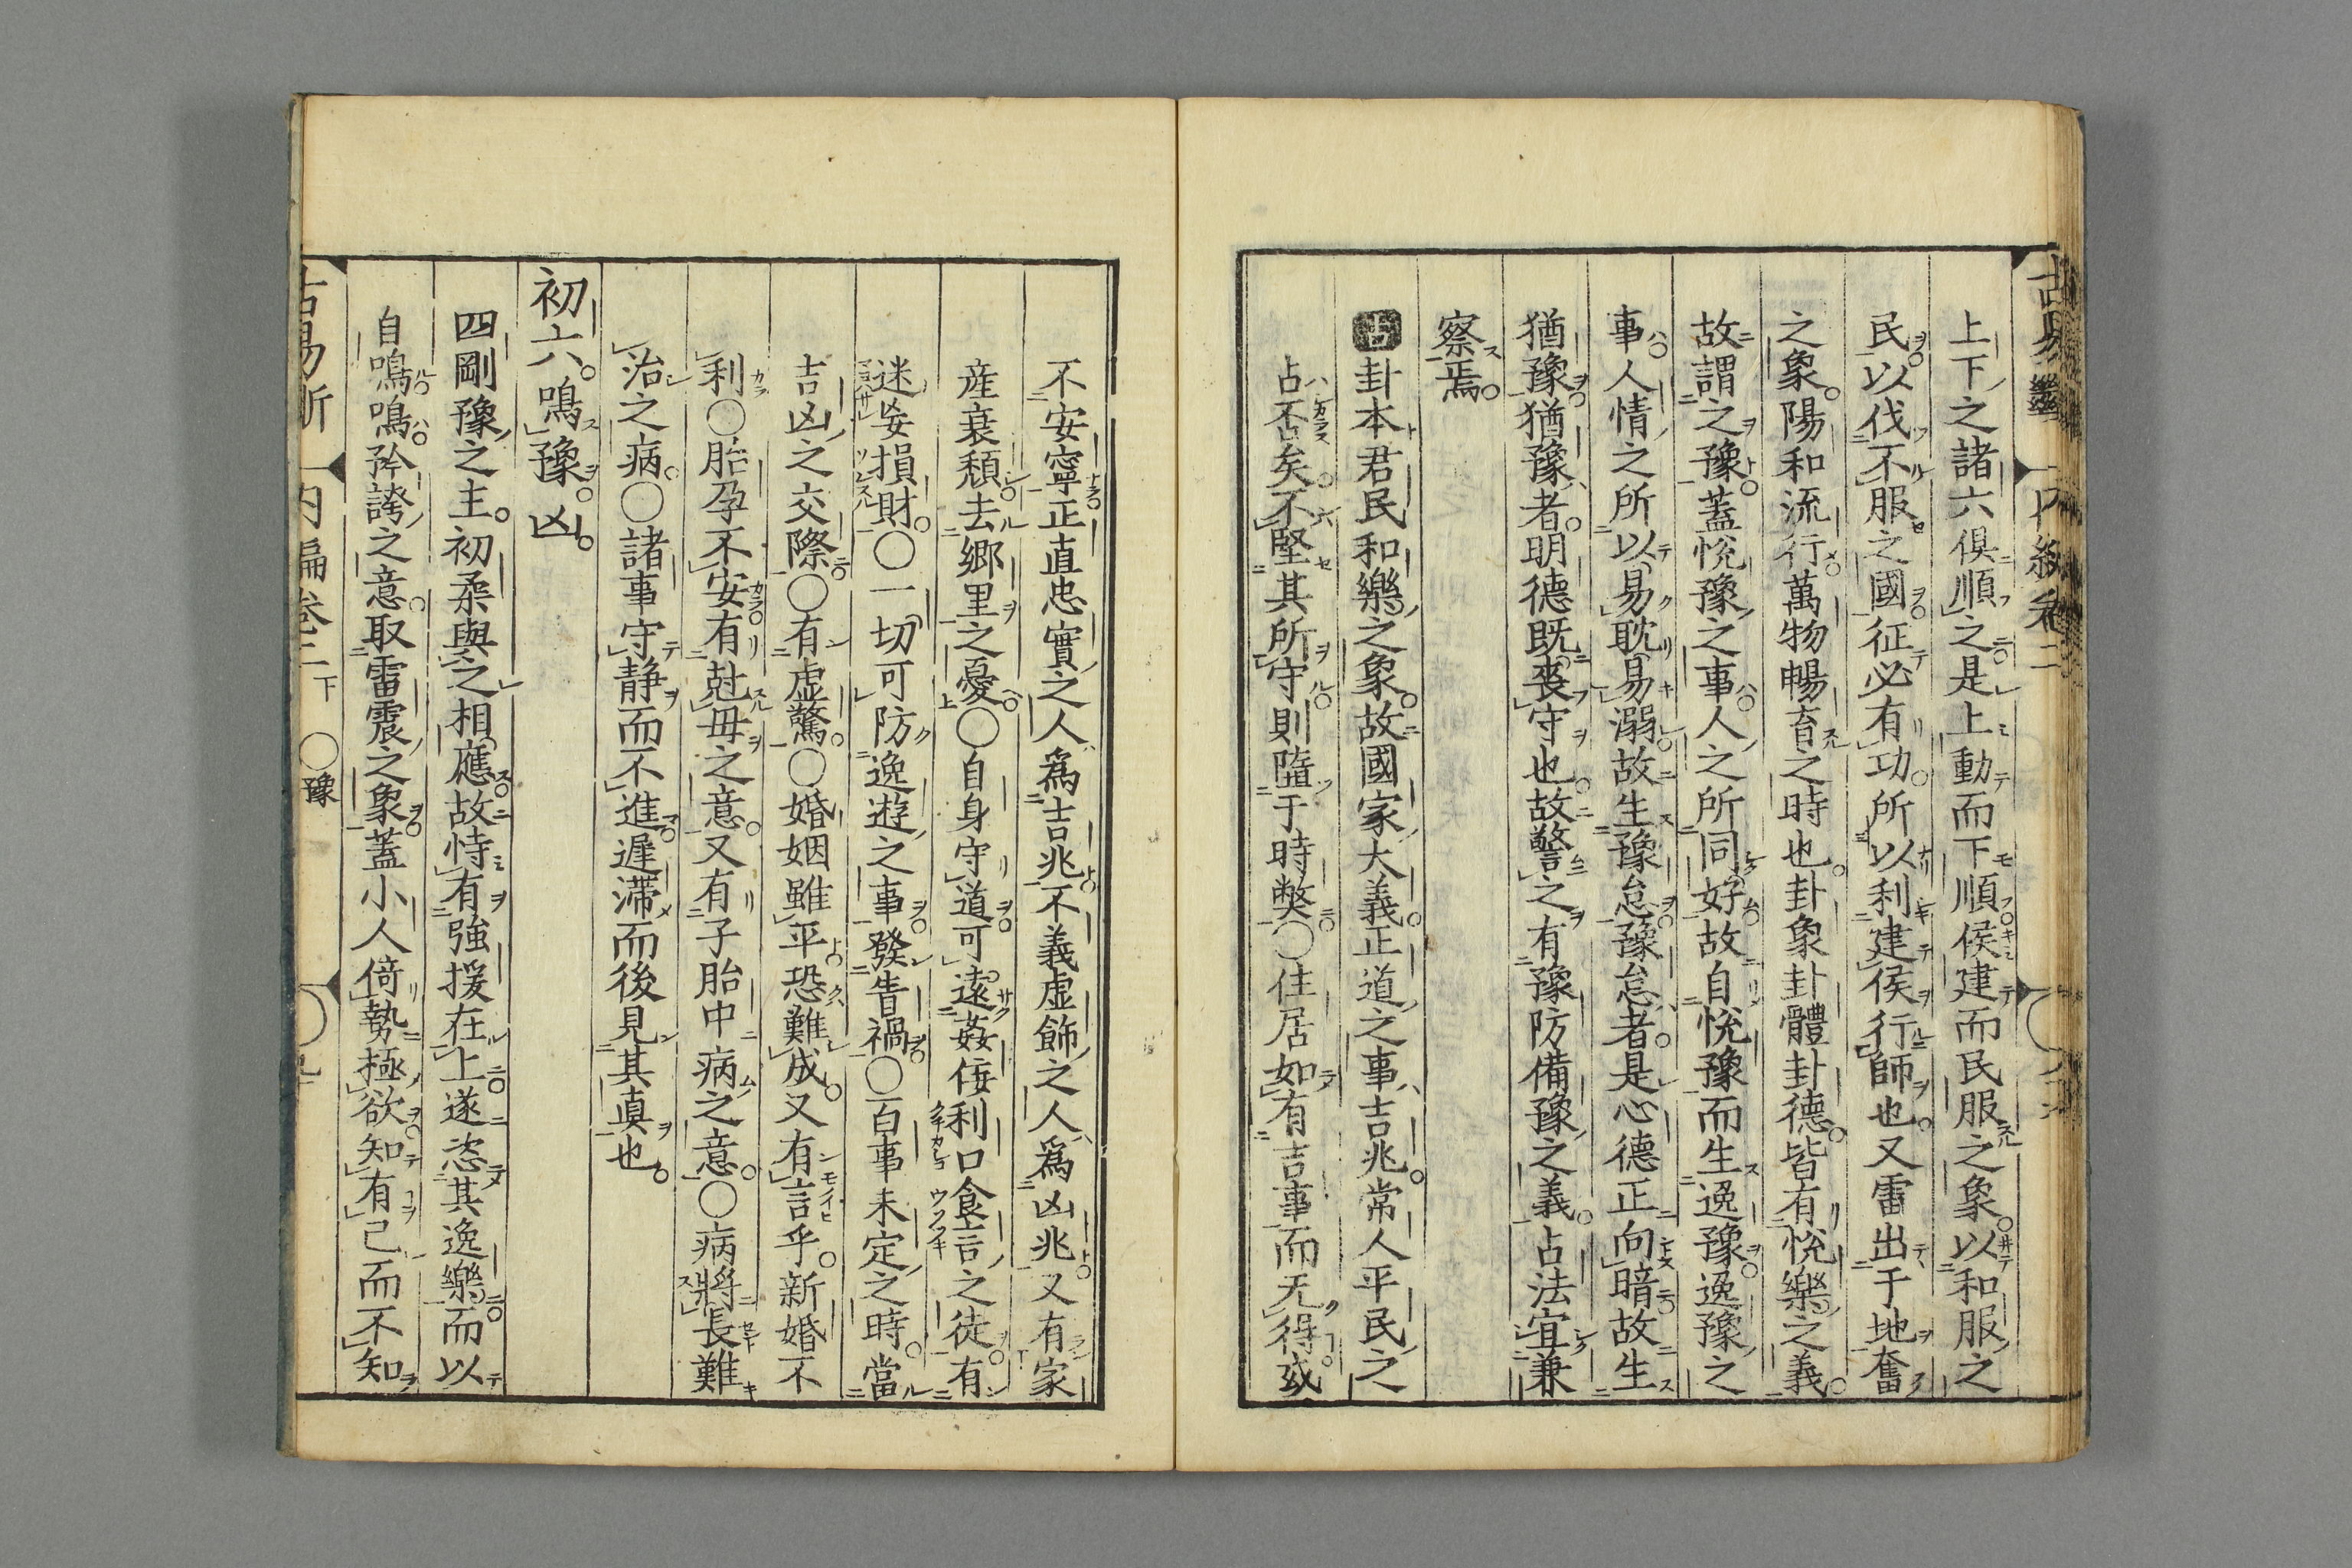 上下之諸六倶順之是上動而下順侯建而民服之象以和服之
民以伐不服之國征必有功所以利建侯行師也又雷出于地奮
之象陽和流行萬物暢育之時也卦象卦體卦德皆有悅樂之義
故謂之豫蓋悅豫之事人之所同好故自悅豫而生逸豫逸豫之
事人情之所以易耽易溺故生豫怠豫怠者是心德正向暗故生
猶豫猶豫者明德既喪守也故警之有豫防備豫之義占法宜兼
察焉
占卦本君民和樂之象故國家大義正道之事吉兆常人平民之
占不吉矣不堅其所守則墮于時獘〇住居如有吉事而无得或
不安寧正直忠實之人爲吉兆不義虛飾之人爲凶兆又有家
産衰頽去郷里之憂〇自身守道可遠姦侫利口食言之徒有
迷妄損財〇一切可防逸遊之事發眚禍〇百事未定之時當
吉凶之交際〇有虛驚〇婚姻雖平恐難成又有言乎新婚不
利〇胎孕不安有尅母之意又有子胎中病之意〇病將長難
治之病〇諸事守静而不進遲滯而後見其真也
初六鳴豫凶
四剛豫之主初柔與之相應故恃有強援在上遂恣其逸樂而以
自鳴鳴矜誇之意取雷震之象蓋小人倚勢極欲知有己而不知
内編卷二下 〇豫